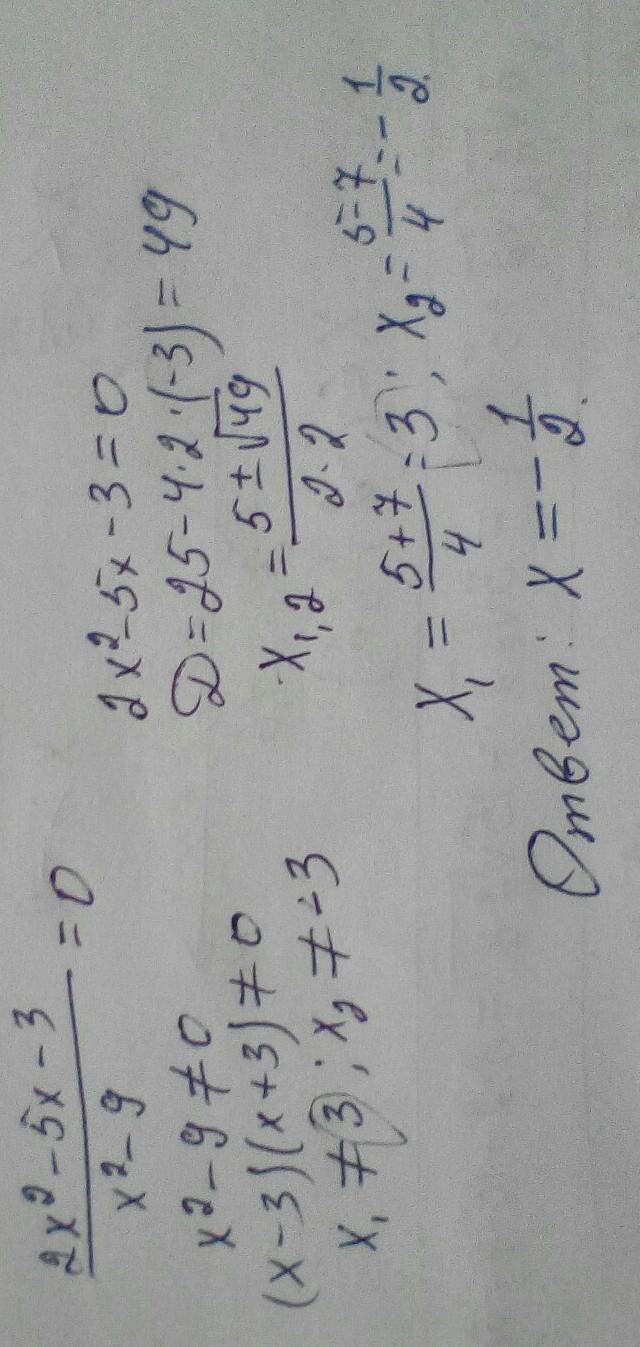 (2x² - 5x - 3)/(x² - 9) = 0
x² - 9 ≠ 0
(x - 3)(x + 3) ≠ 0
x₁ ≠ 3 ; x₂ ≠ -3
2x² - 5x - 3 = 0
D = 25 - 4·2·(-3) = 49
x₁,₂ = (5 ± √49)/(2·2)
x₁ = (5 + 7)/4 = 3 ; x₂ = (5 - 7)/4 = -1/2.
Ответ: x = -1/2.